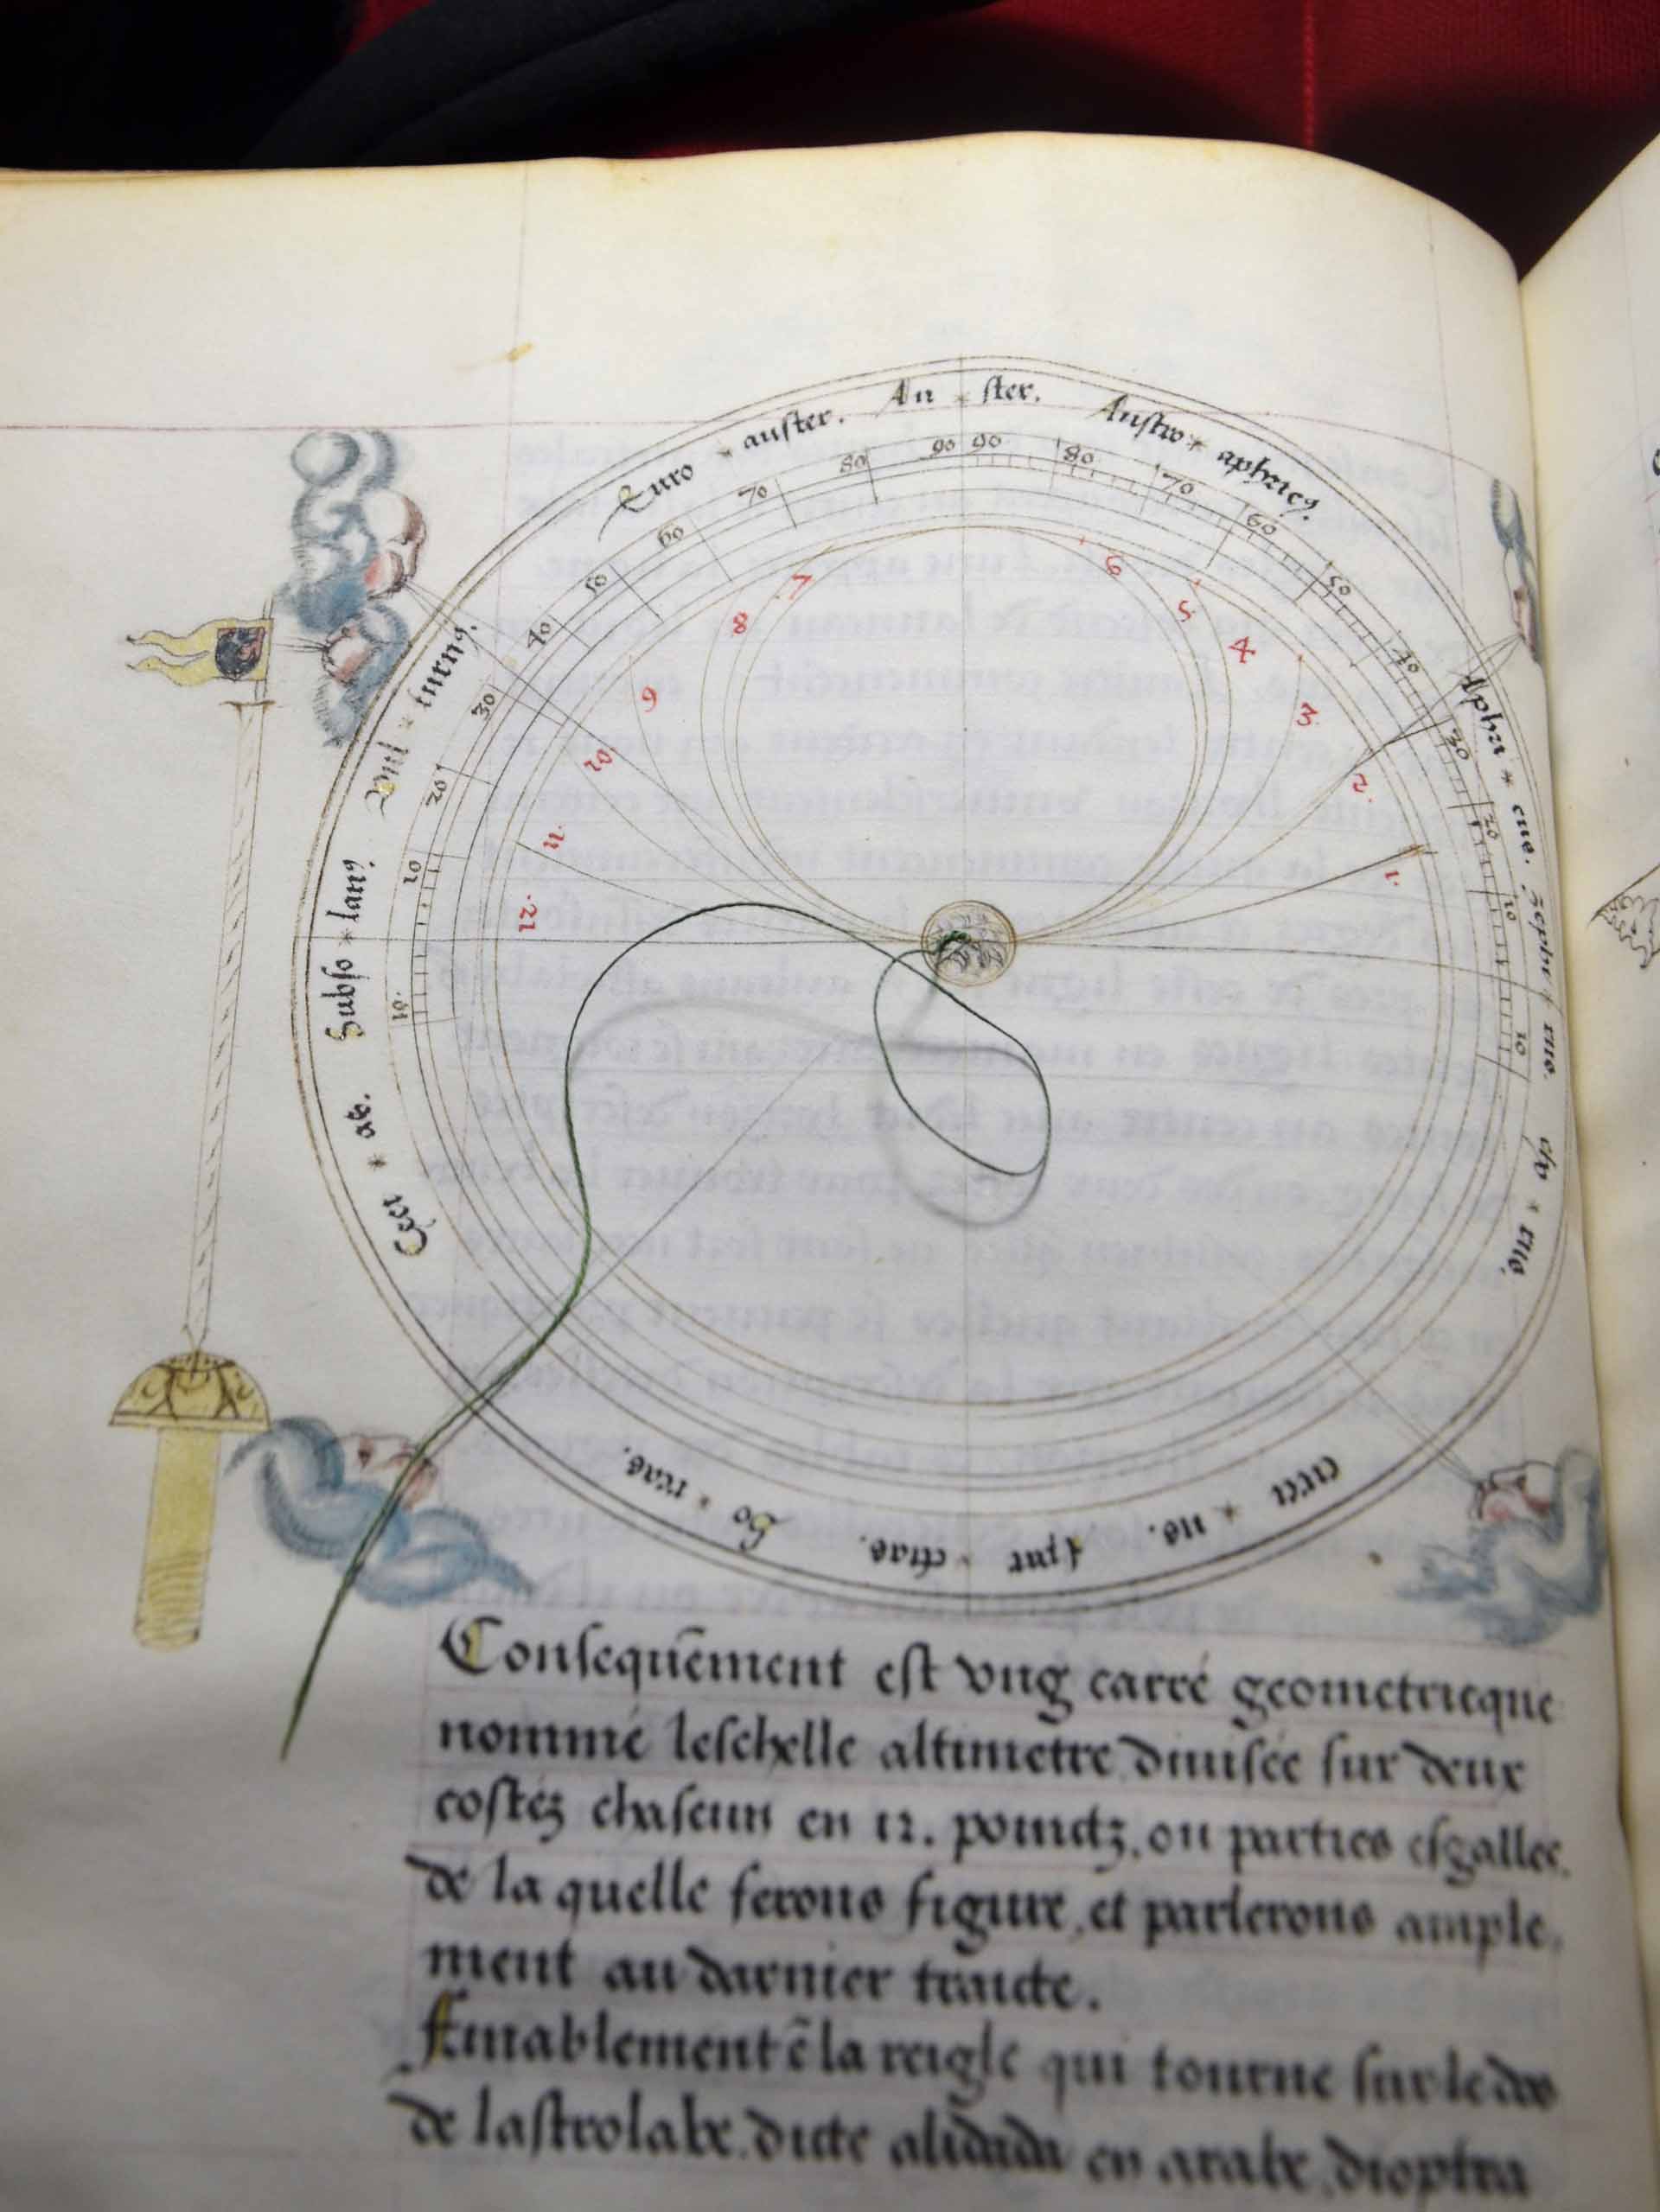 Euro * auster.
Au * ster.
Austro * aphricꝰ.
Aphri * cus.
Zephi * rus.
Vul * turnꝰ.
Subso * lanꝰ.
Bo * reas.
Apar * ctias.
circi * us.
90 90
80 80
70 70
60 60
50 50
40 40
30 30
20 20
10 10
10. 10
1. 2. 3. 4 5 6
7 8 9 10. 11. 12.
Consequẽment est vng carré geometricque
nommé leschelle altimetre diuisée sur deux
costéz chascun en 12. poinctz, ou parties esgalles.
de la quelle ferons figure, et parlerons ample,
ment au darnier traicte.
Finablement ẽ la reigle qui tourne sur le dos
de lastrolabe. dicte alidada en arabe, dioptra